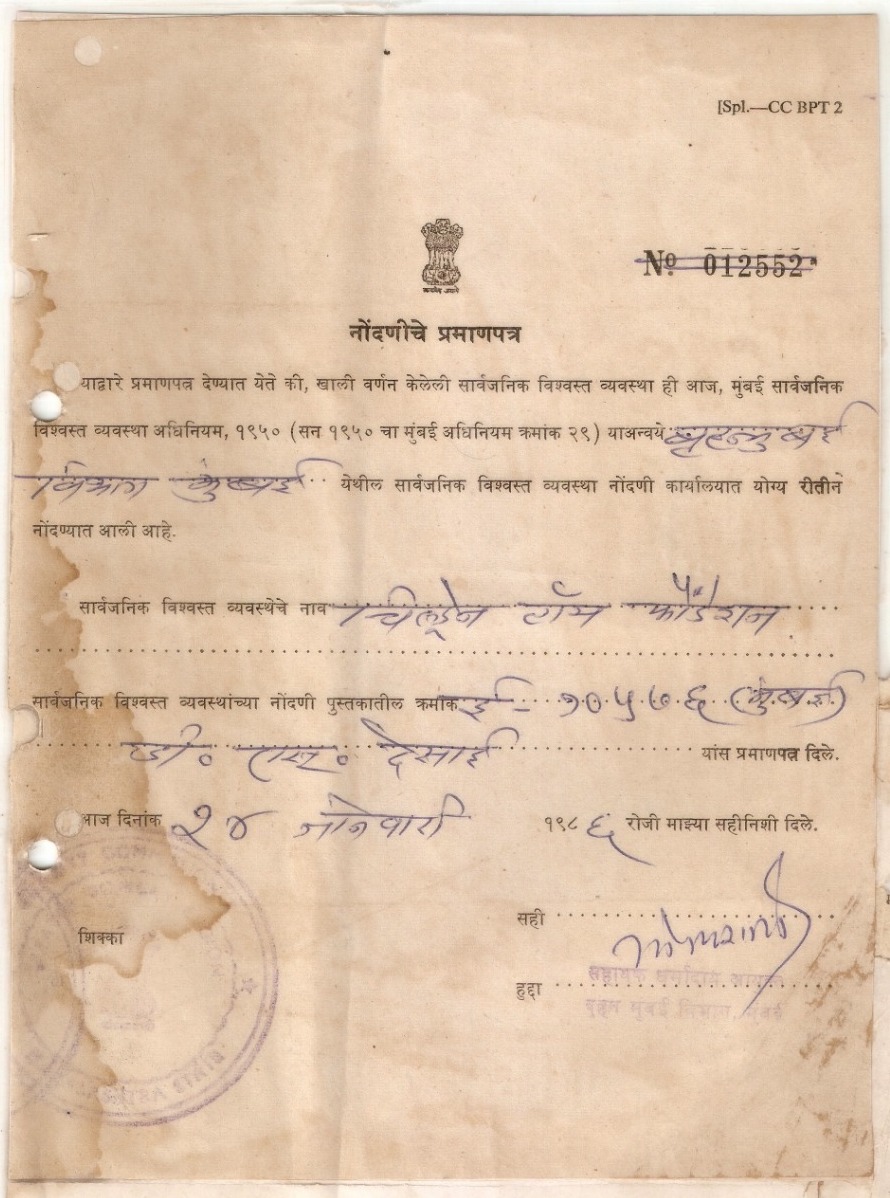 [Spl.—CC BPT 2
No 012552
नोंदणीचे प्रमाणपत्र
याद्वारे प्रमाणपत्र देण्यात येते की, खाली वर्णन केलेली सार्वजनिक विश्वस्त व्यवस्था ही आज, मुंबई सार्वजनिक
विश्वस्त व्यवस्था अधिनियम, १९५० (सन १९५० चा मुंबई अधिनियम क्रमांक २९) याअन्वये बृहन्मुंबई
विभाग मुंबई येथील सार्वजनिक विश्वस्त व्यवस्था नोंदणी कार्यालयात योग्य रीतीने
नोंदण्यात आली आहे.
सार्वजनिक विश्वस्त व्यवस्थेचे नाव चिल्ड्रेन टॉय फौंडेशन
सार्वजनिक विश्वस्त व्यवस्थांच्या नोंदणी पुस्तकातील क्रमांक ई-१०५७६ (मुंबई)
डी. एस. देसाई यांस प्रमाणपत्र दिले.
आज दिनांक २४ जानेवारी १९८६ रोजी माझ्या सहीनिशी दिले.
सही
शिक्का
हुद्दा
सहायक धर्मादाय आयुक्त
बृहन्मुंबई विभाग, मुंबई